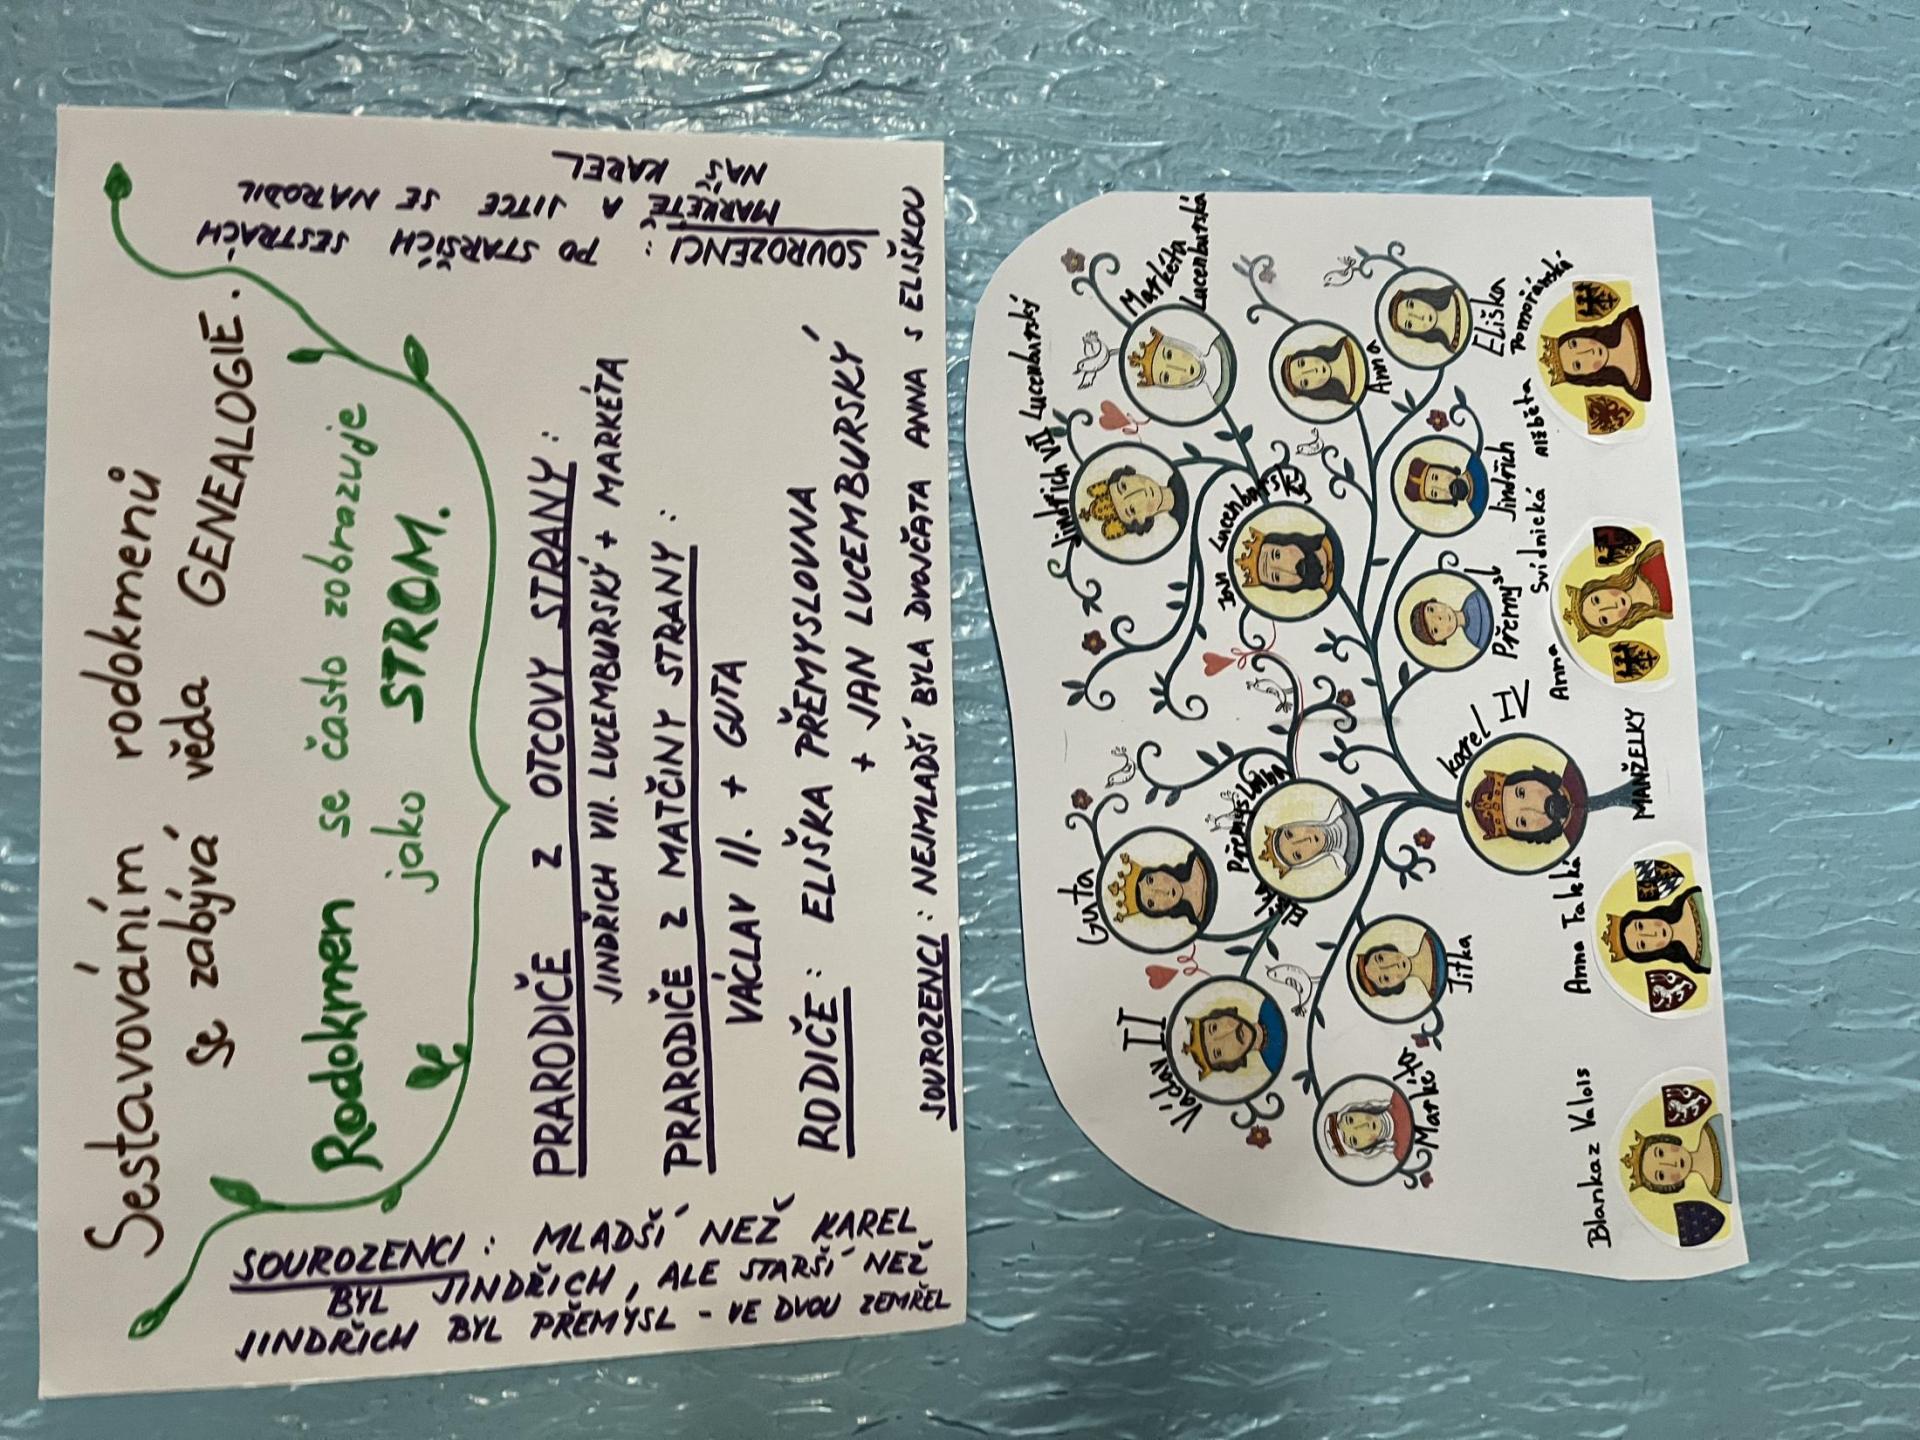 Sestavováním rodokmenů
se zabývá věda GENEALOGIE.
Rodokmen se často zobrazuje
jako STROM.
PRARODIČE Z OTCOVY STRANY:
JINDŘICH VII. LUCEMBURSKÝ + MARKÉTA
PRARODIČE Z MATČINY STRANY:
VÁCLAV II. + GUTA
RODIČE: ELIŠKA PŘEMYSLOVNA
+ JAN LUCEMBURSKÝ
SOUROZENCI: NEJMLADŠÍ BYLA DVOJČATA ANNA S ELIŠKOU
SOUROZENCI: PO STARŠÍCH SESTRÁCH
MARKÉTĚ A JITCE SE NARODIL
NÁŠ KAREL
SOUROZENCI: MLADŠÍ NEŽ KAREL
BYL JINDŘICH, ALE STARŠÍ NEŽ
JINDŘICH BYL PŘEMYSL - VE DVOU ZEMŘEL
Jindřich VII Lucemburský
Markéta
Lucemburská
Guta
Václav II
Jan
Eliška
Přemyslovna
Anna
Eliška
Jindřich
Přemysl
Karel IV
Jitka
Markéta
MANŽELKY
Blanka z Valois
Anna Falcká
Anna Svídnická
Alžběta Pomořanská